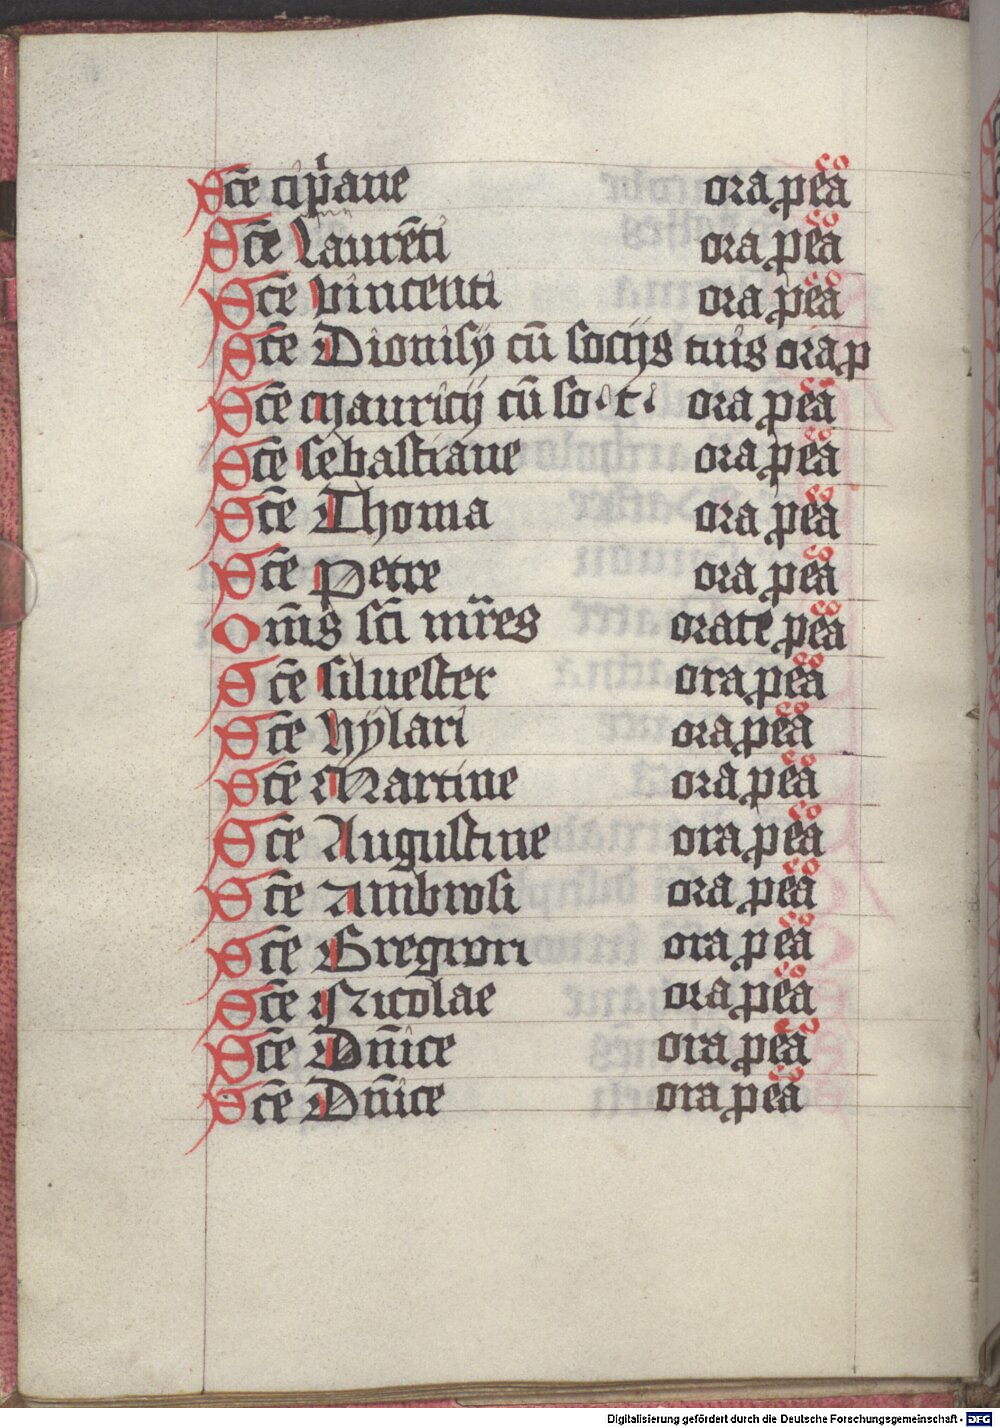 Sce cip̄ane ora p eā
Sce Laurēti ora p eā
Sce vincenti ora p eā
Sce Dionisij cū socijs tuis ora p
Sce Mauricij cū so · t · ora p eā
Sce sebastiane ora p eā
Sce Thoma ora p eā
Sce Petre ora p eā
Om̄s sc̄i mr̄es orate p eā
Sce silvester ora p eā
Sce hylari ora p eā
Sce Martine ora p eā
Sce Augustine ora p eā
Sce Ambrosi ora p eā
Sce Gregori ora p eā
Sce Nicolae ora p eā
Sce Dn̄ice ora p eā
Sce Dn̄ice ora p eā
Digitalisierung gefördert durch die Deutsche Forschungsgemeinschaft - DFG